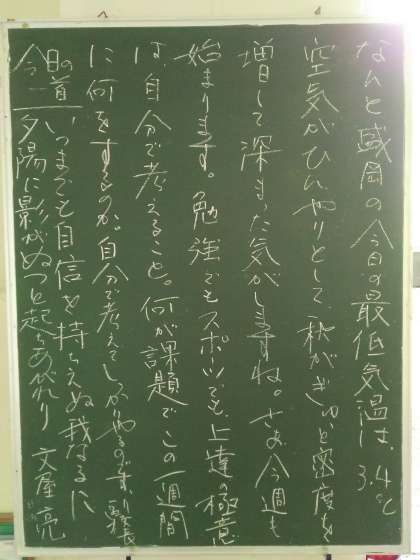 なんと盛岡の今日の最低気温は、3.4℃
空気がひんやりとして、秋がぎゅっと密度を
増して深まった気がしますね。さあ今週も
始まります。勉強でもスポーツでも、上達の極意
は自分で考えること。何が課題でこの一週間
に何をするのか。自分で考えてしっかりやるのです。
今日の一首
いつまでも自信を持ちえぬ我なるに
夕陽に影がぬっと起ちあがれり 文屋亮